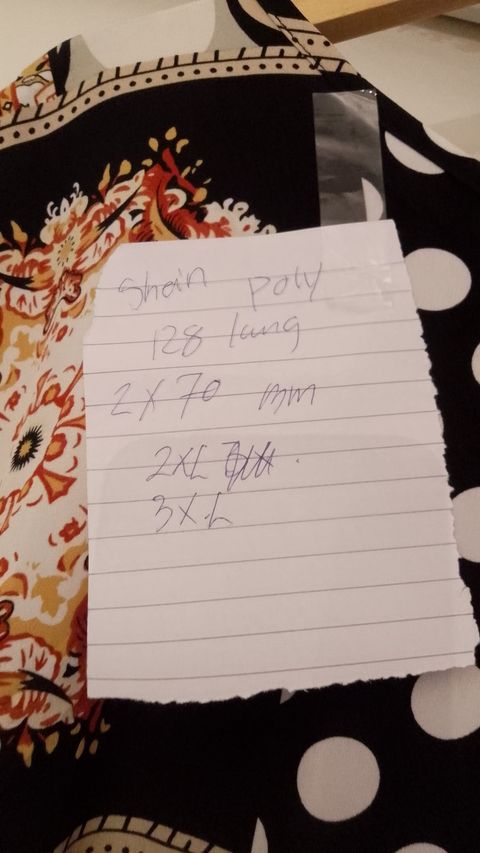 Shein poly
128 lang
2 X 70 mm
2XL
3XL